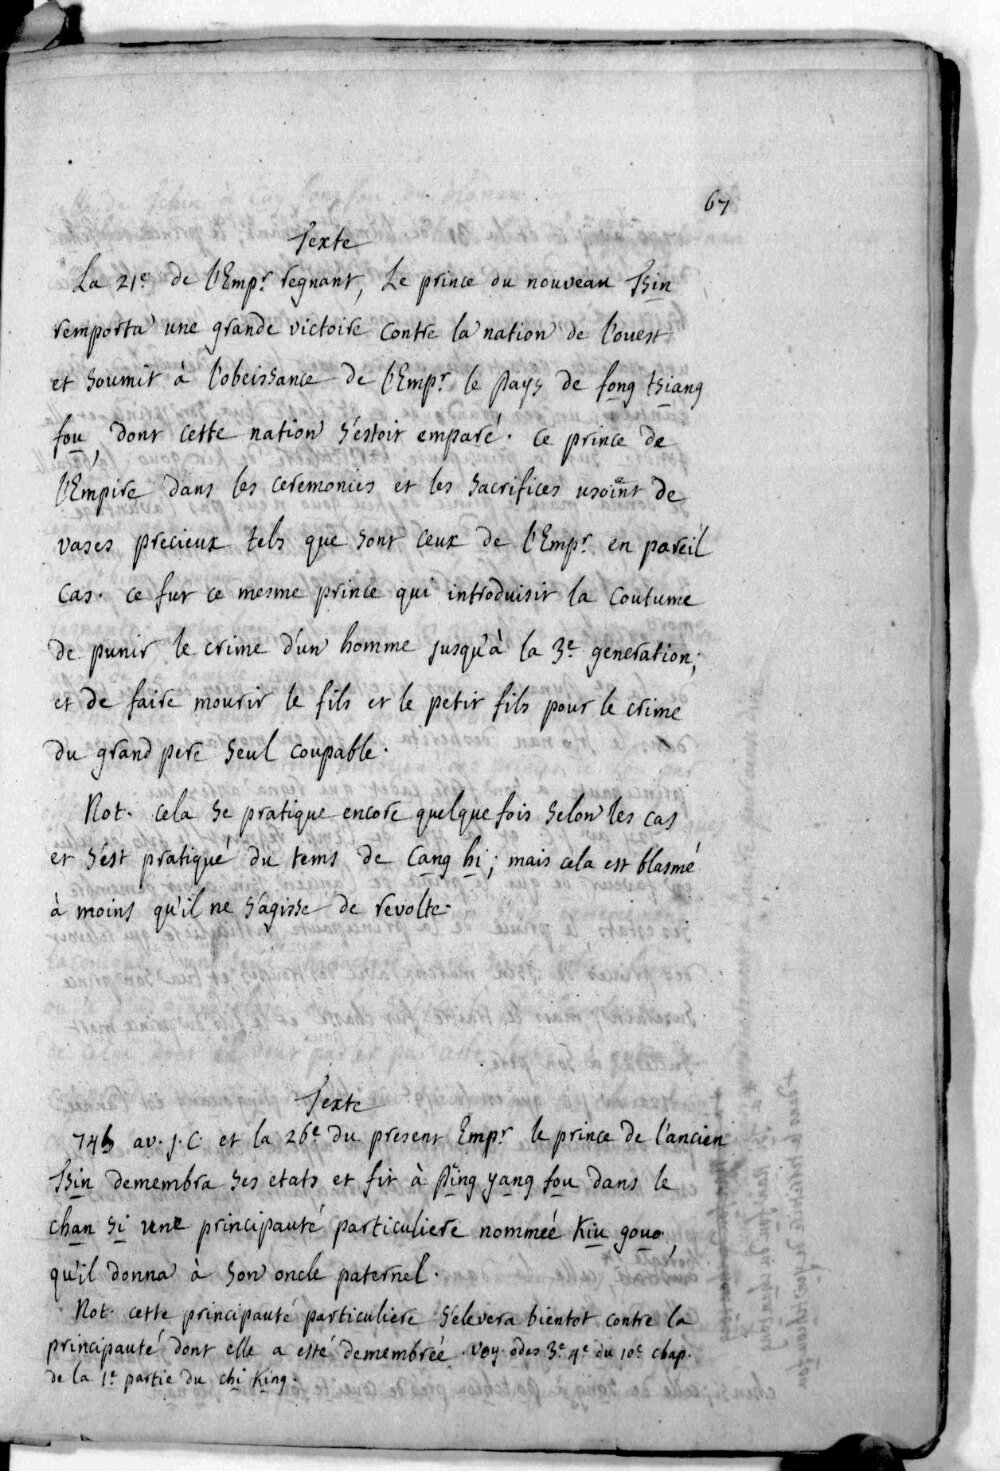 67
Texte
La 21e de l'Empr regnant, Le prince du nouveau Tsin
remporta une grande victoire contre la nation de l'ouest
et soumit à l'obeissance de l'Empr le pays de fong tsiang
fou, dont cette nation s'estoit emparé. ce prince de
l'Empire dans les ceremonies et les sacrifices usoient de
vases precieux tels que sont ceux de l'Empr en pareil
cas. ce fut ce mesme prince qui introduisit la coutume
de punir le crime d'un homme jusqu'à la 3e generation,
et de faire mourir le fils et le petit fils pour le crime
du grand pere seul coupable.
Not. cela se pratique encore quelque fois selon les cas
et s'est pratiqué du tems de Cang hi; mais cela est blasmé
à moins qu'il ne s'agisse de revolte.
Texte
745 av. J.C. et la 26e du present Empr le prince de l'ancien
Tsin demembra ses etats et fit à Ping yang fou dans le
chan si une principauté particuliere nommée Kiu gouo,
qu'il donna à son oncle paternel.
Not. cette principauté particuliere s'elevera bientot contre la
principauté dont elle a esté demembrée. voy. odes 3e 4e du 10e chap.
de la 1e partie du chi King.